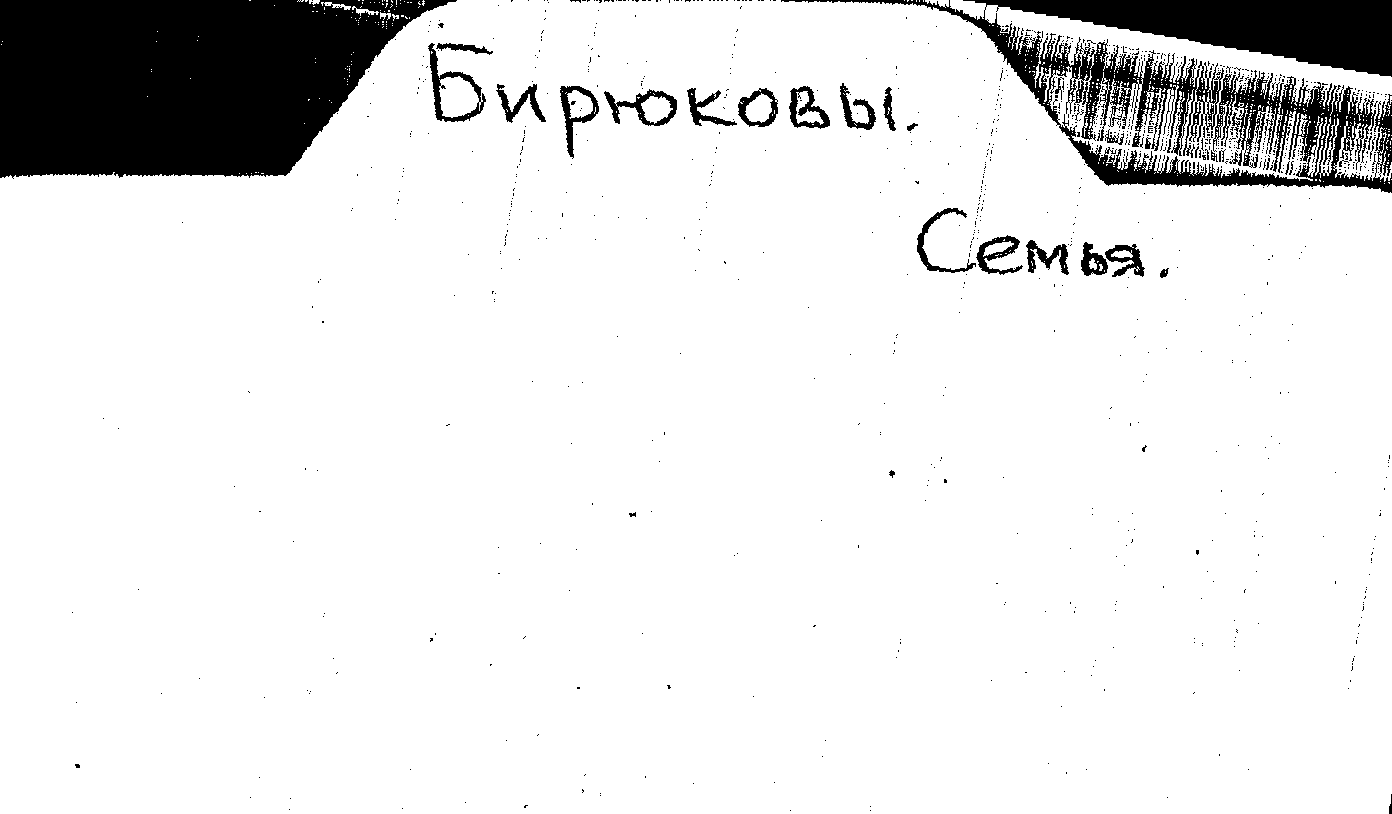 Бирюковы.
Семья.